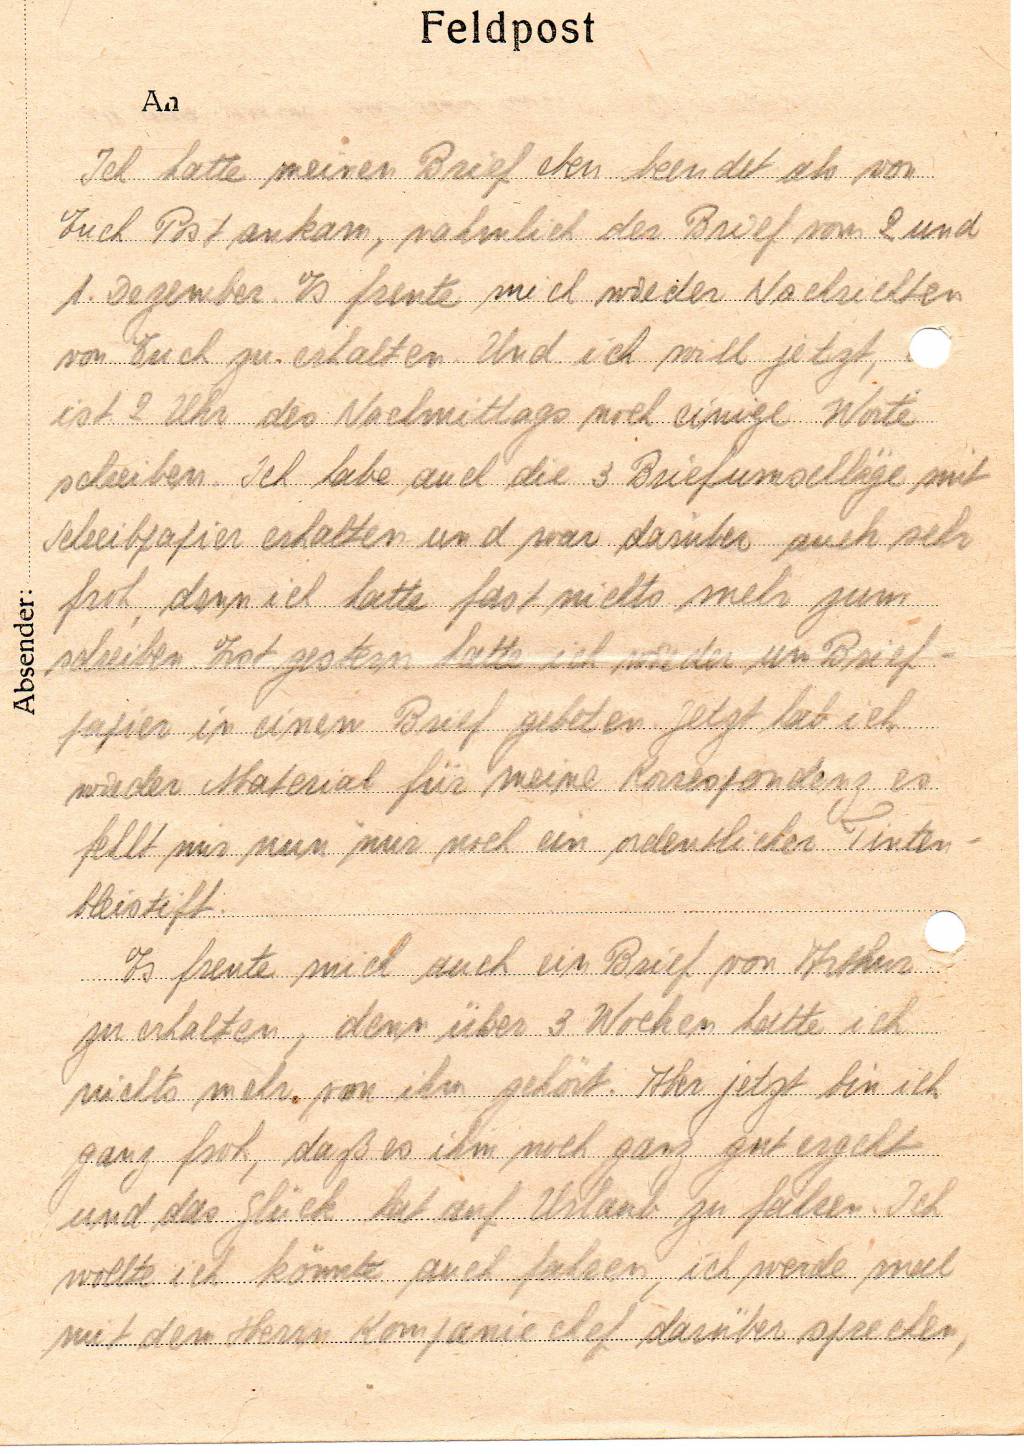 Feldpost
An
Absender:
Ich hatte meinen Brief eben beendet als von
Euch Post ankam, nähmlich der Brief vom 2 und
1. Dezember. Es freute mich wieder Nachrichten
von Euch zu erhalten. Und ich will jetzt,
ist 2 Uhr des Nachmittags noch einige Worte
schreiben. Ich habe auch die 3 Briefumschläge mit
Schreibpapier erhalten und war darüber auch sehr
froh, denn ich hatte fast nichts mehr zum
schreiben Erst gestern hatte ich wieder um Brief-
papier in einen Brief gebeten. Jetzt hab ich
wieder Material für meine Korrespondenz es
fehlt mir nun nur noch ein ordentlicher Tinten-
bleistift.
Es freute mich auch ein Brief von Arthur
zu erhalten, denn über 3 Wochen hatte ich
nichts mehr von ihm gehört. Aber jetzt bin ich
ganz froh, daß es ihm noch ganz gut ergeht
und das Glück hat auf Urlaub zu fahren. Ich
wollte ich könnte auch fahren, ich werde mal
mit dem Herrn Kompanie chef darüber sprechen,